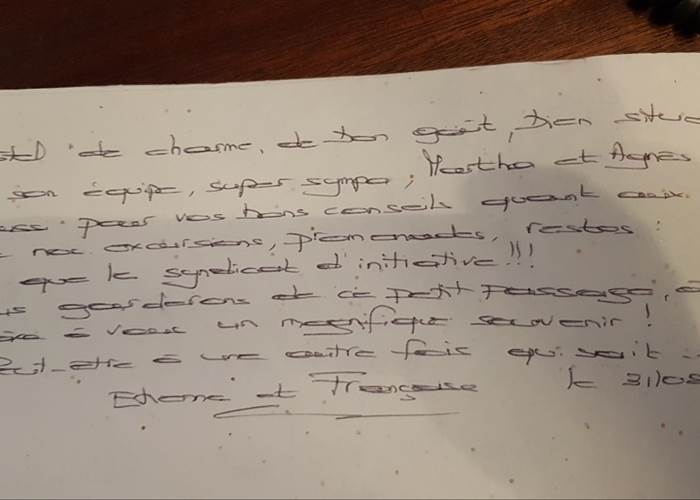 de charme, de bon goût, bien situé
son équipe, super sympa, Martha et Agnes
pour vos bons conseils quant aux
nos excursions, promenades, restos :
que le syndicat d'initiative !!!
garderons de ce petit passage,
à vous un magnifique souvenir !
Peut-être à une autre fois qui sait
Etienne et Françoise le 31/08